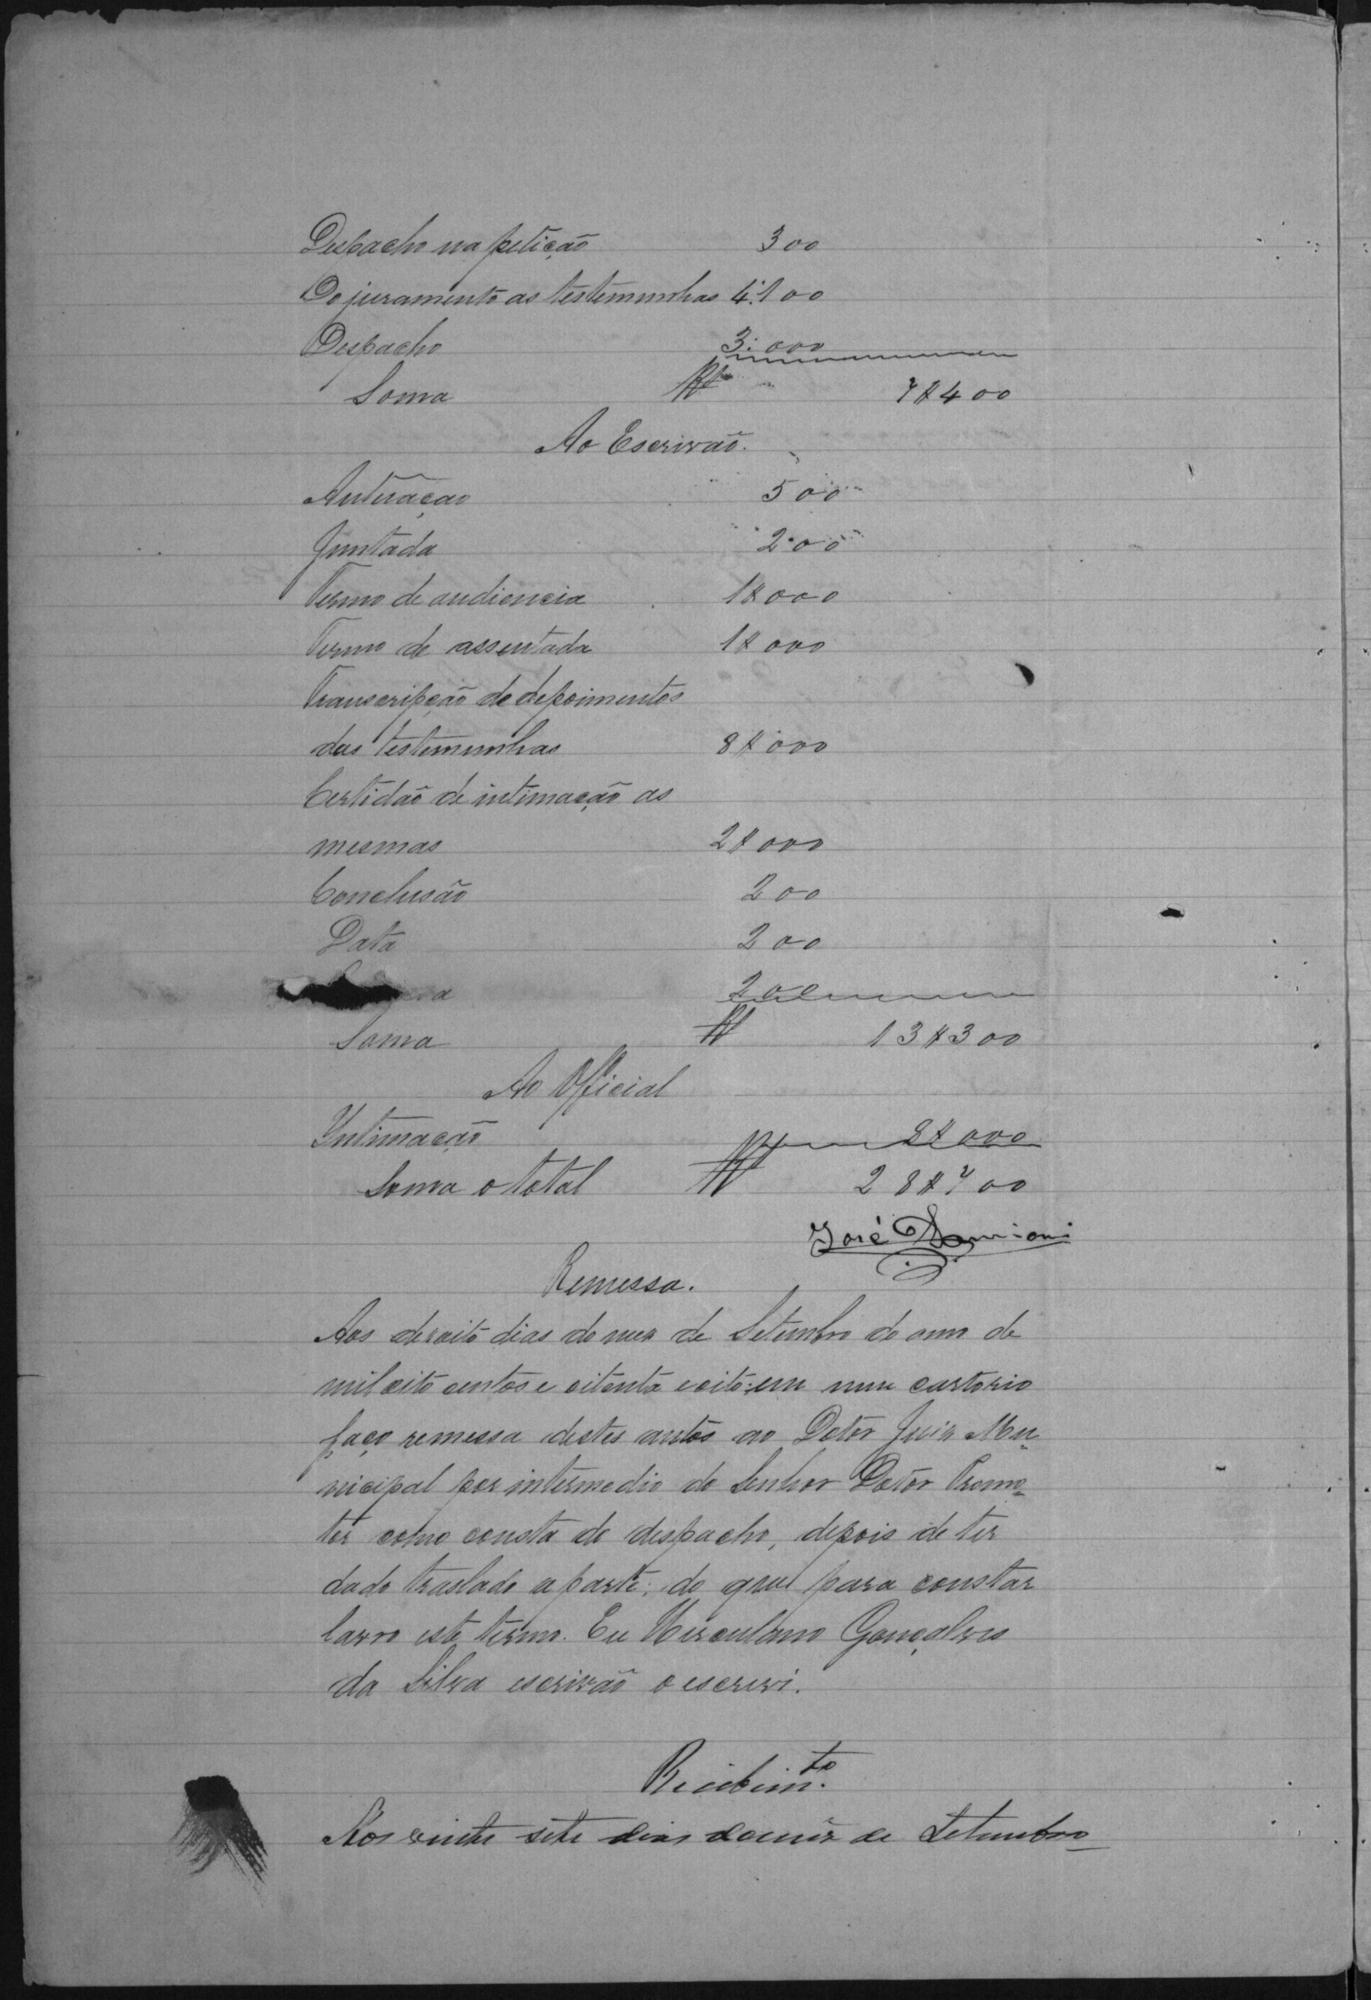 Despacho na petição 300
Do juramento as testemunhas 4:100
Despacho 3:000
Soma R$ 7$400
Ao Escrivão.
Autuação 500
Juntada 200
Termo de audiencia 1$000
Termo de assentada 1$000
Transcripção de depoimentos
das testemunhas 8$000
Certidão de intimação as
mesmas 2$000
Conclusão 200
Data 200
200
Soma R$ 13$300
Ao Official
Intimação 8$000
Soma o total R$ 28$700
José Damiani
Remessa.
Aos desoito dias do mez de Setembro do anno de
mil oito centos e oitenta e oito em meu cartorio
faço remessa destes autos ao Dotor Juiz Mu-
nicipal por intermedio do Senhor Dotor Promo-
tor como consta do despacho, depois de ter
dado traslado a parte; do que para constar
lavro este termo. Eu Herculano Gonçalves
da Silva escrivão o escrevi.
Recebim.to
Aos vinte sete dias do mêz de Setembro